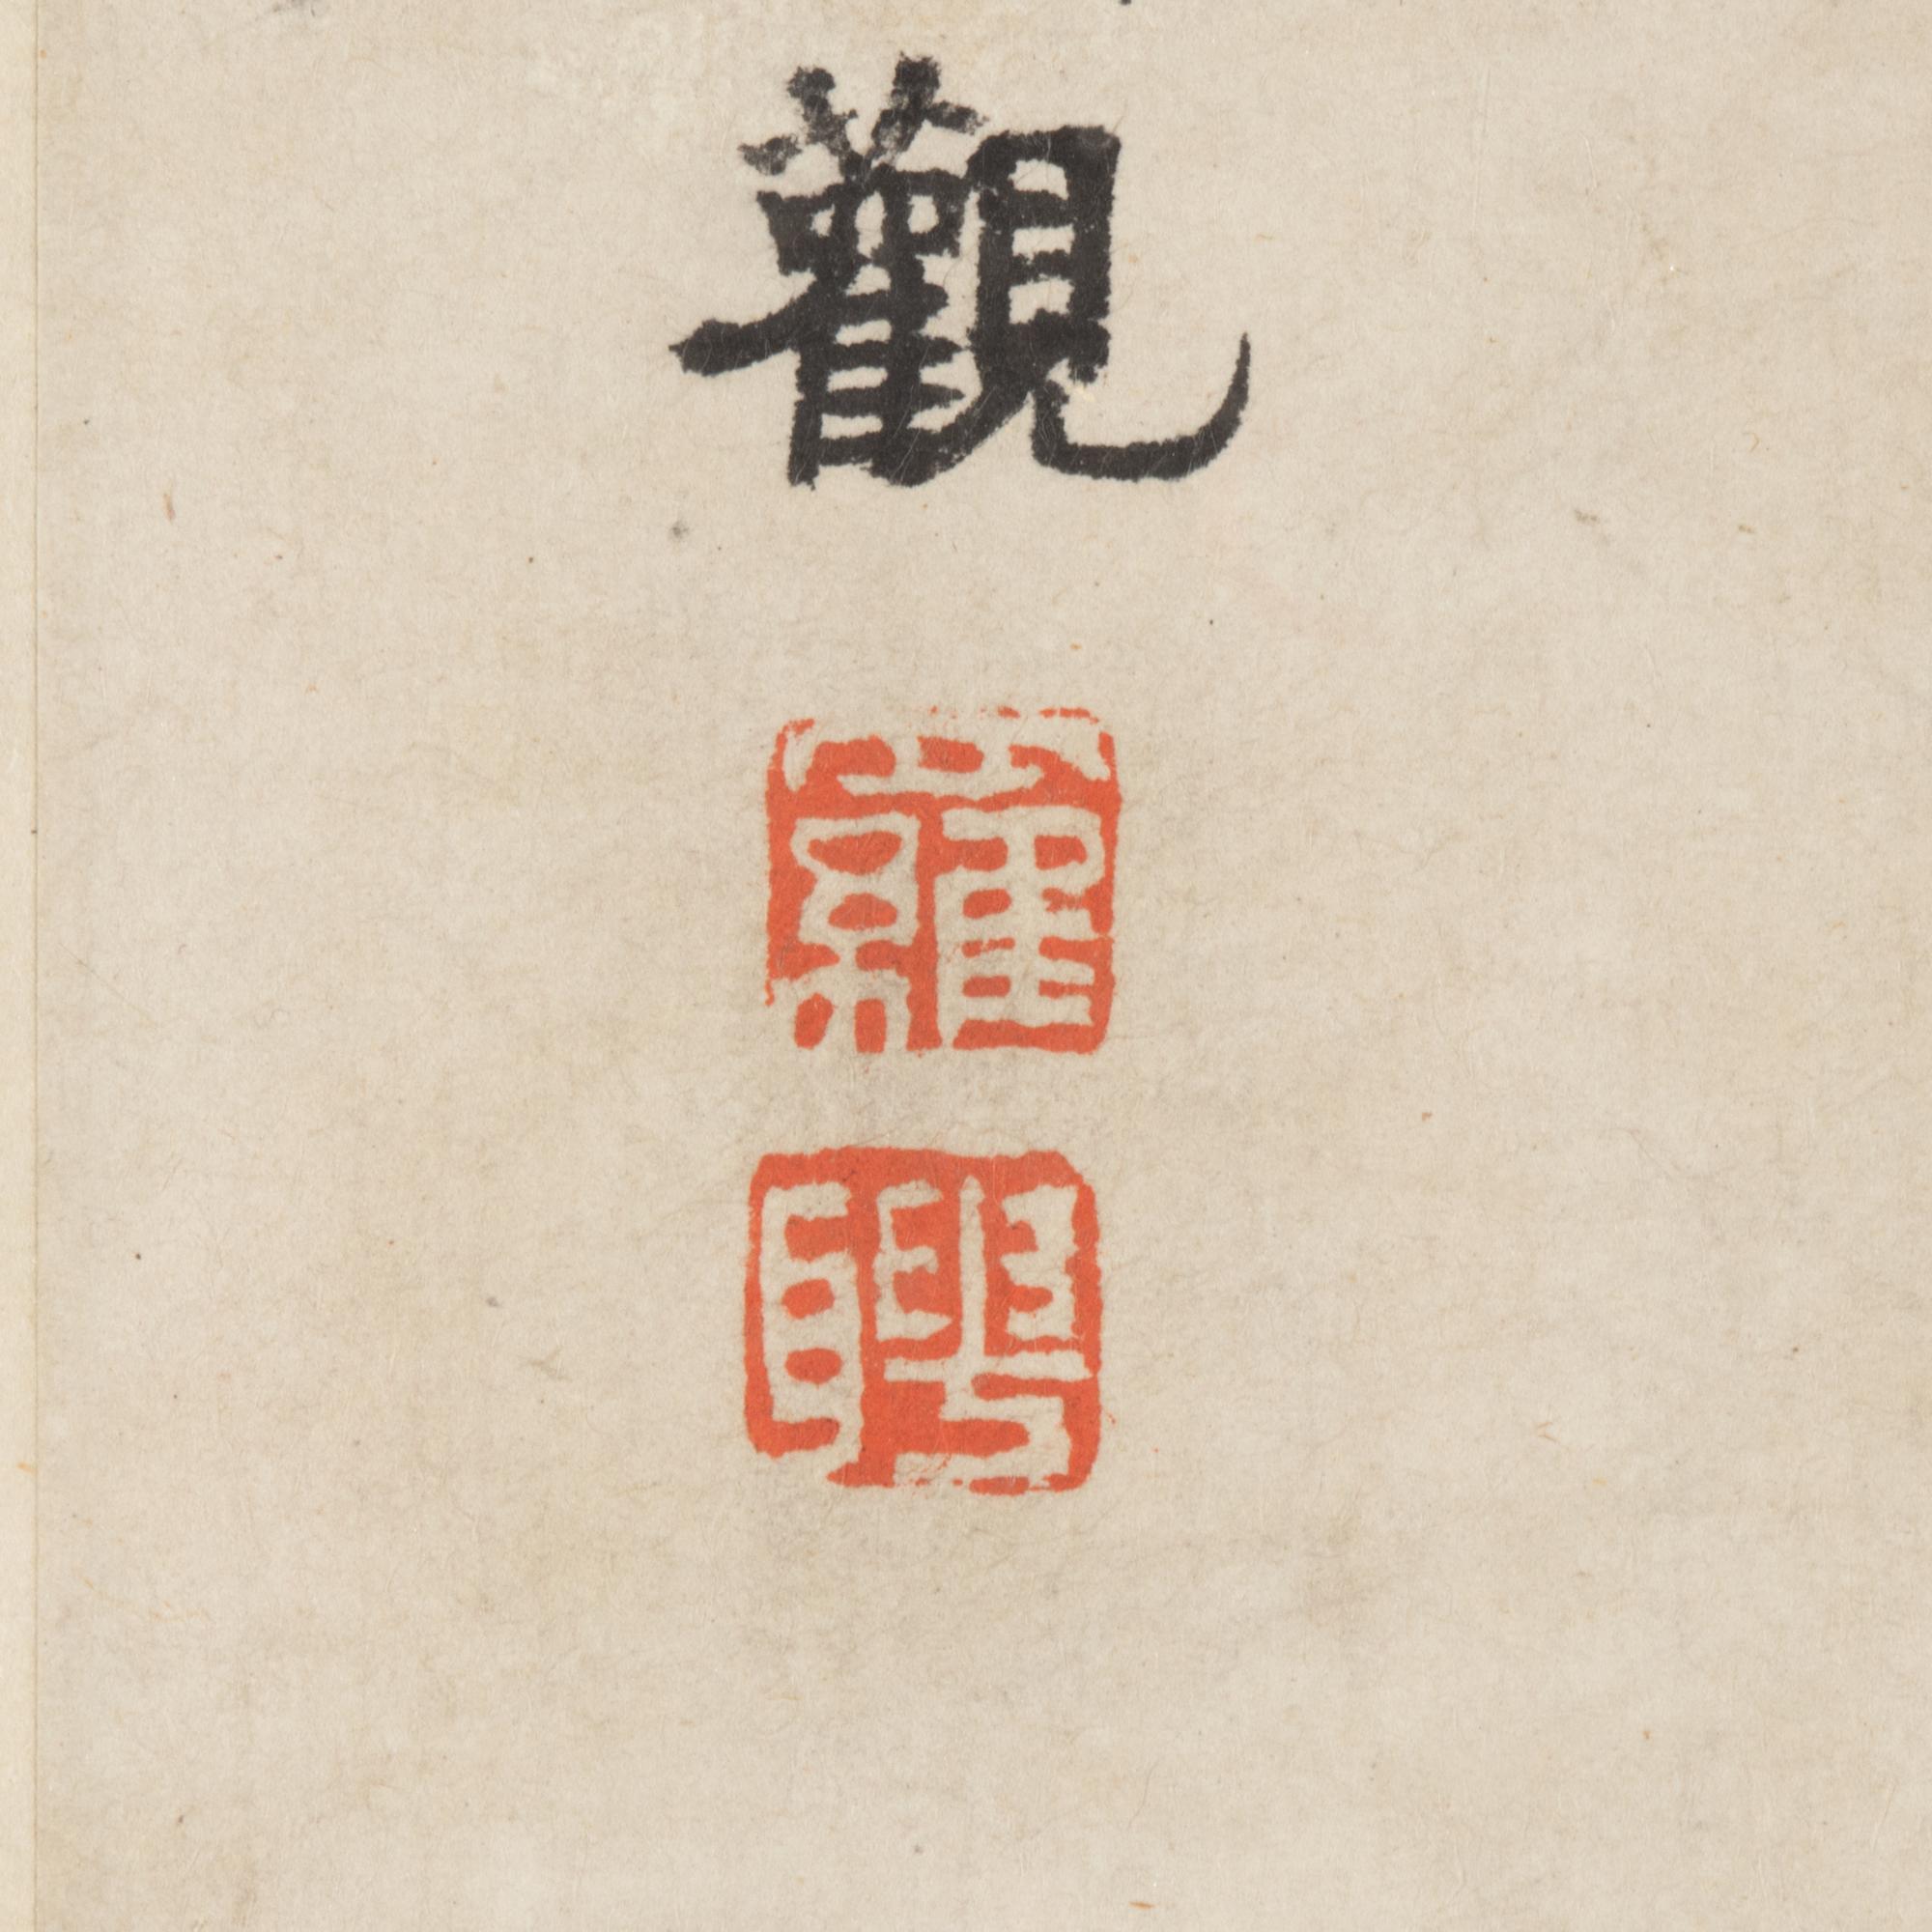 觀
羅
聘